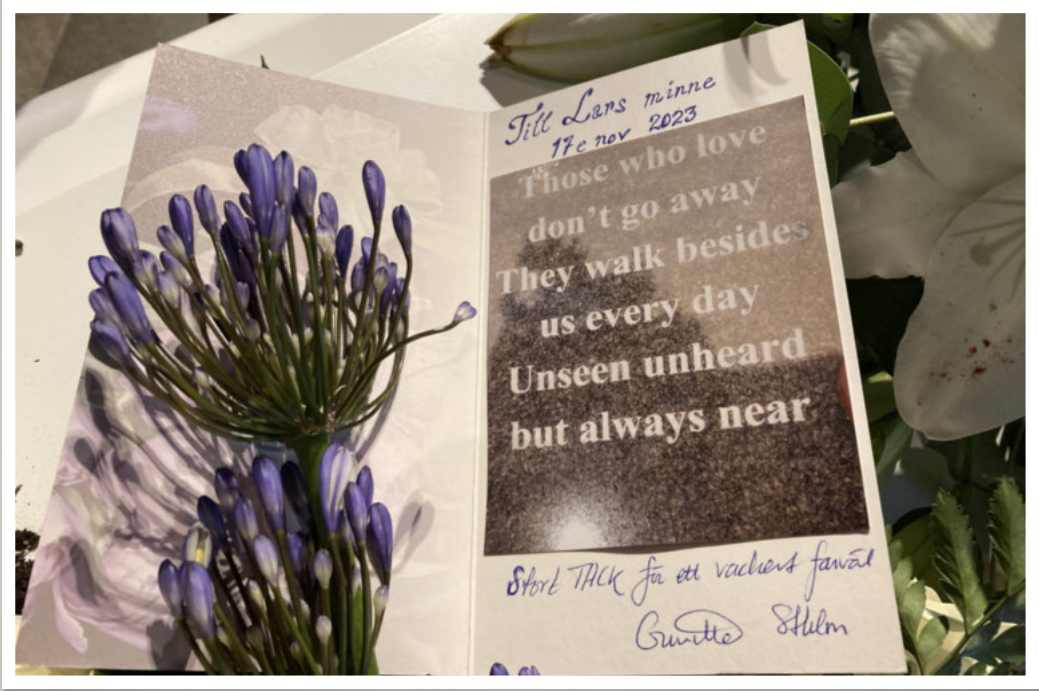 Till Lars minne
17e nov 2023
Those who love
don't go away
They walk besides
us every day
Unseen unheard
but always near
Stort TACK för ett vackert farväl
Sthlm